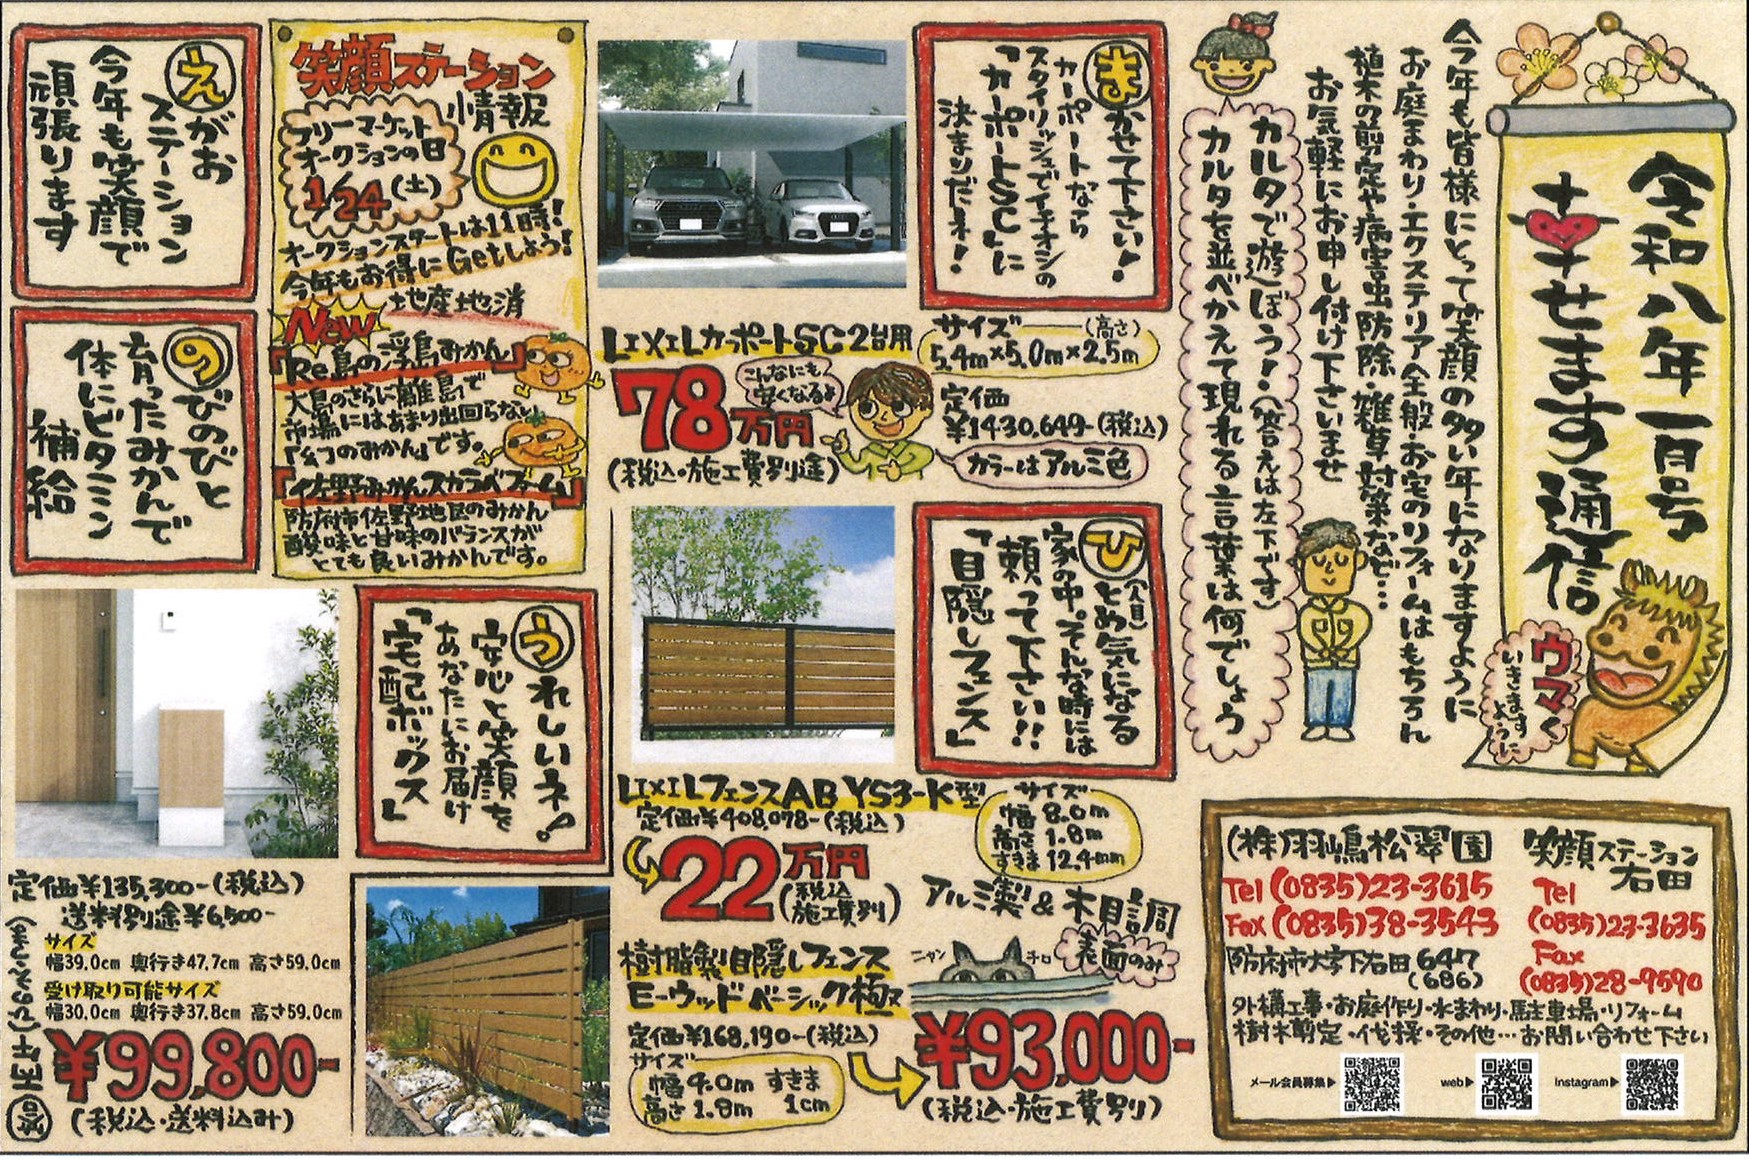 令和八年 一月号
幸せます通信
ウマく
いきます
ように
今年も皆様にとって笑顔の多い年になりますように
お庭まわり・エクステリア全般・お宅のリフォームはもちろん
植木の剪定や病害虫防除・雑草対策など…
お気軽にお申し付け下さいませ
カルタで遊ぼう!(答えは左下です)
カルタを並べかえて現れる言葉は何でしょう
まかせて下さい!
カーポートなら
スタイリッシュでイチオシの
「カーポートSC」に
決まりだネ!
LIXILカーポートSC2台用
サイズ (高さ)
5.4m×5.0m×2.5m
78万円
(税込・施工費別途)
こんなにも
安くなるよ
定価
¥1430,649-(税込)
カラーはアルミ色
ひとめ(人目)気になる
家の中。そんな時には
頼って下さい!!
「目隠しフェンス」
LIXILフェンスAB YS3-K型
定価¥408,078-(税込)
22万円
(税込
施工費別)
サイズ
幅 8.0m
高さ 1.8m
すきま 12.4mm
アルミ製&木目調
表面のみ
ニャン チロ
樹脂製目隠しフェンス
E-ウッドベーシック極
定価¥168,190-(税込)
サイズ
幅4.0m すきま
高さ1.8m 1cm
¥93,000-
(税込・施工費別)
笑顔ステーション
情報
フリーマーケット
オークションの日
1/24(土)
オークションスタートは11時!
今年もお得にGetしよう!
New 地産地消
「Re島の浮島みかん」
大島のさらに離島で
市場にはあまり出回らない
「幻のみかん」です。
「佐野みかんスカラベファーム」
防府市佐野地区のみかん
酸味と甘味のバランスが
とても良いみかんです。
えがお
ステーション
今年も笑顔で
頑張ります
のびのびと
育ったみかんで
体にビタミン
補給
うれしいネ!
安心と笑顔を
あなたにお届け
「宅配ボックス」
定価¥135,300-(税込)
送料別途¥6,500-
サイズ
幅39.0cm 奥行き47.7cm 高さ59.0cm
受け取り可能サイズ
幅30.0cm 奥行き37.8cm 高さ59.0cm
¥99,800-
(税込・送料込み)
(株)羽嶋松翠園
Tel (0835)23-3615
Fax (0835)38-3543
防府市大字下右田647
(686)
笑顔ステーション
右田
Tel
(0835)23-3635
Fax
(0835)28-9590
外構工事・お庭作り・水まわり・駐車場・リフォーム
樹木剪定・伐採・その他…お問い合わせ下さい
メール会員募集▶
web▶
Instagram▶